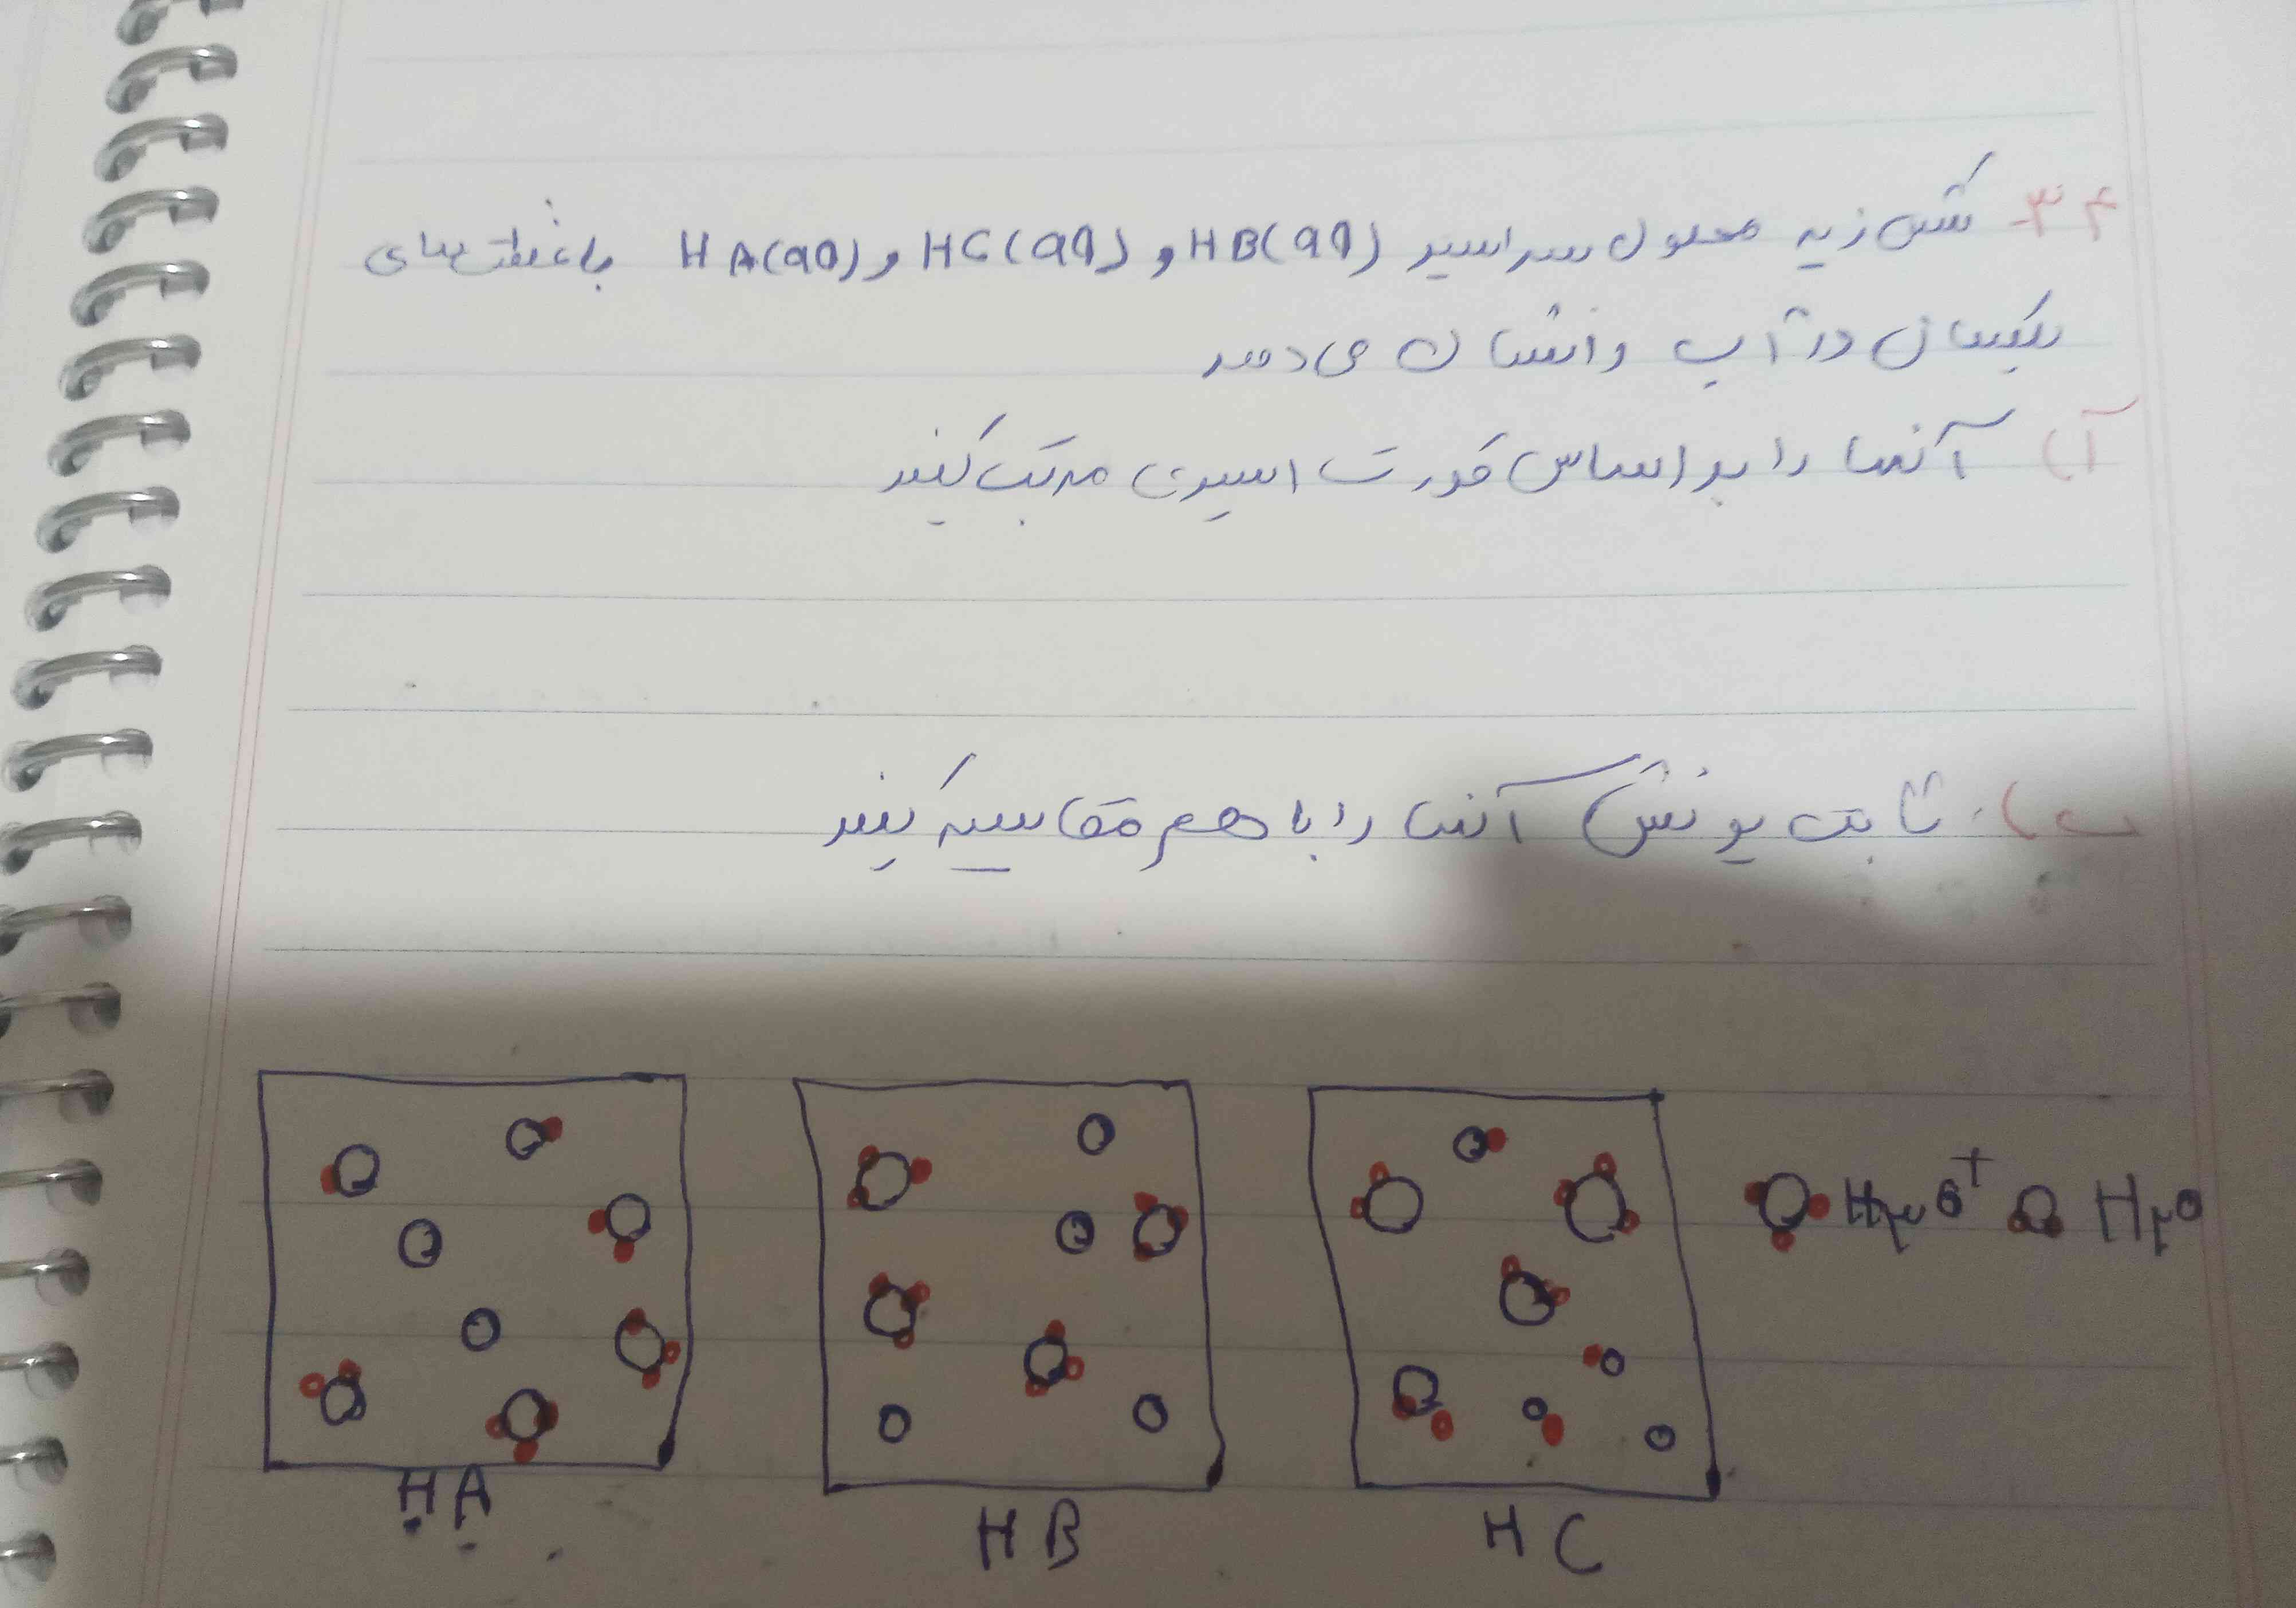 ۳۴- شکل زیر محلول سه اسید HB(aq) و HC(aq) و HA(aq) با غلظت های
یکسان در آب را نشان می دهد
آ) آنها را بر اساس قدرت اسیدی مرتب کنید
ب) ثابت یونش آنها را با هم مقایسه کنید
H۳O+ H۲O
HA HB HC